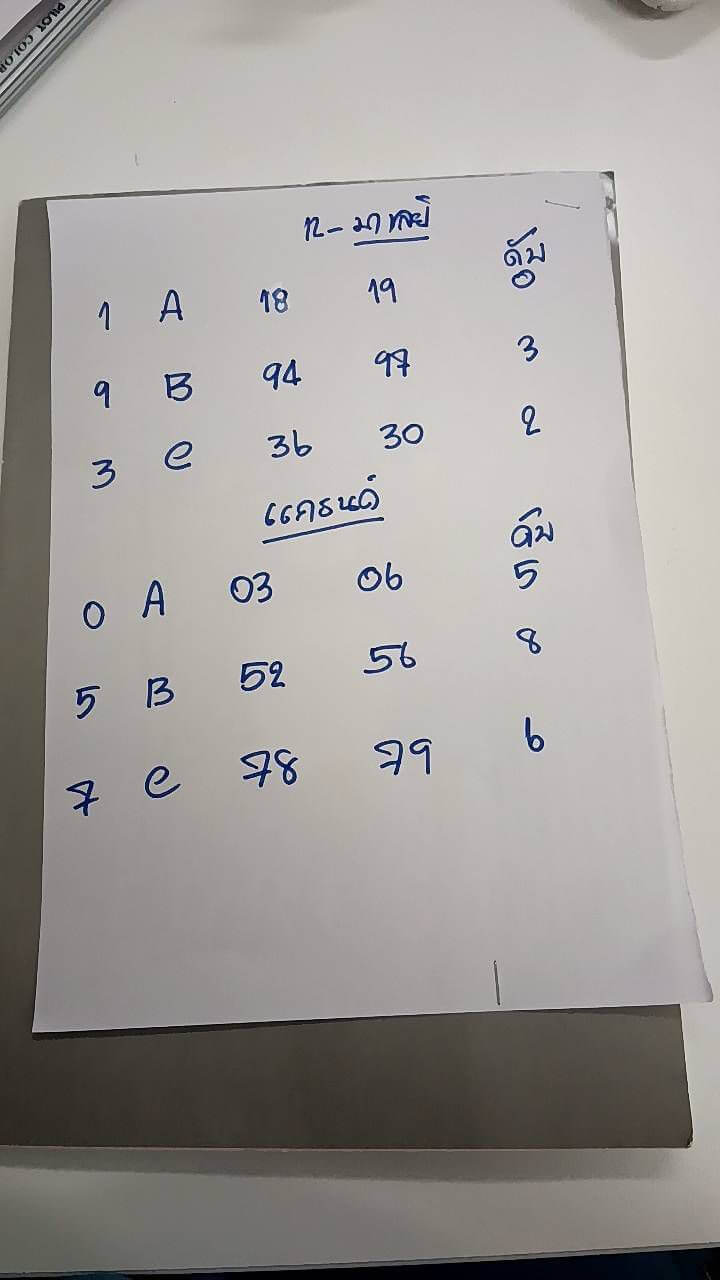 PILOT COLOR
ท-มาเลย์
ดับ
1 A 18 19 0
9 B 94 97 3
3 C 36 30 2
แครนด์
ดับ
0 A 03 06 5
5 B 52 56 8
7 C 78 79 6